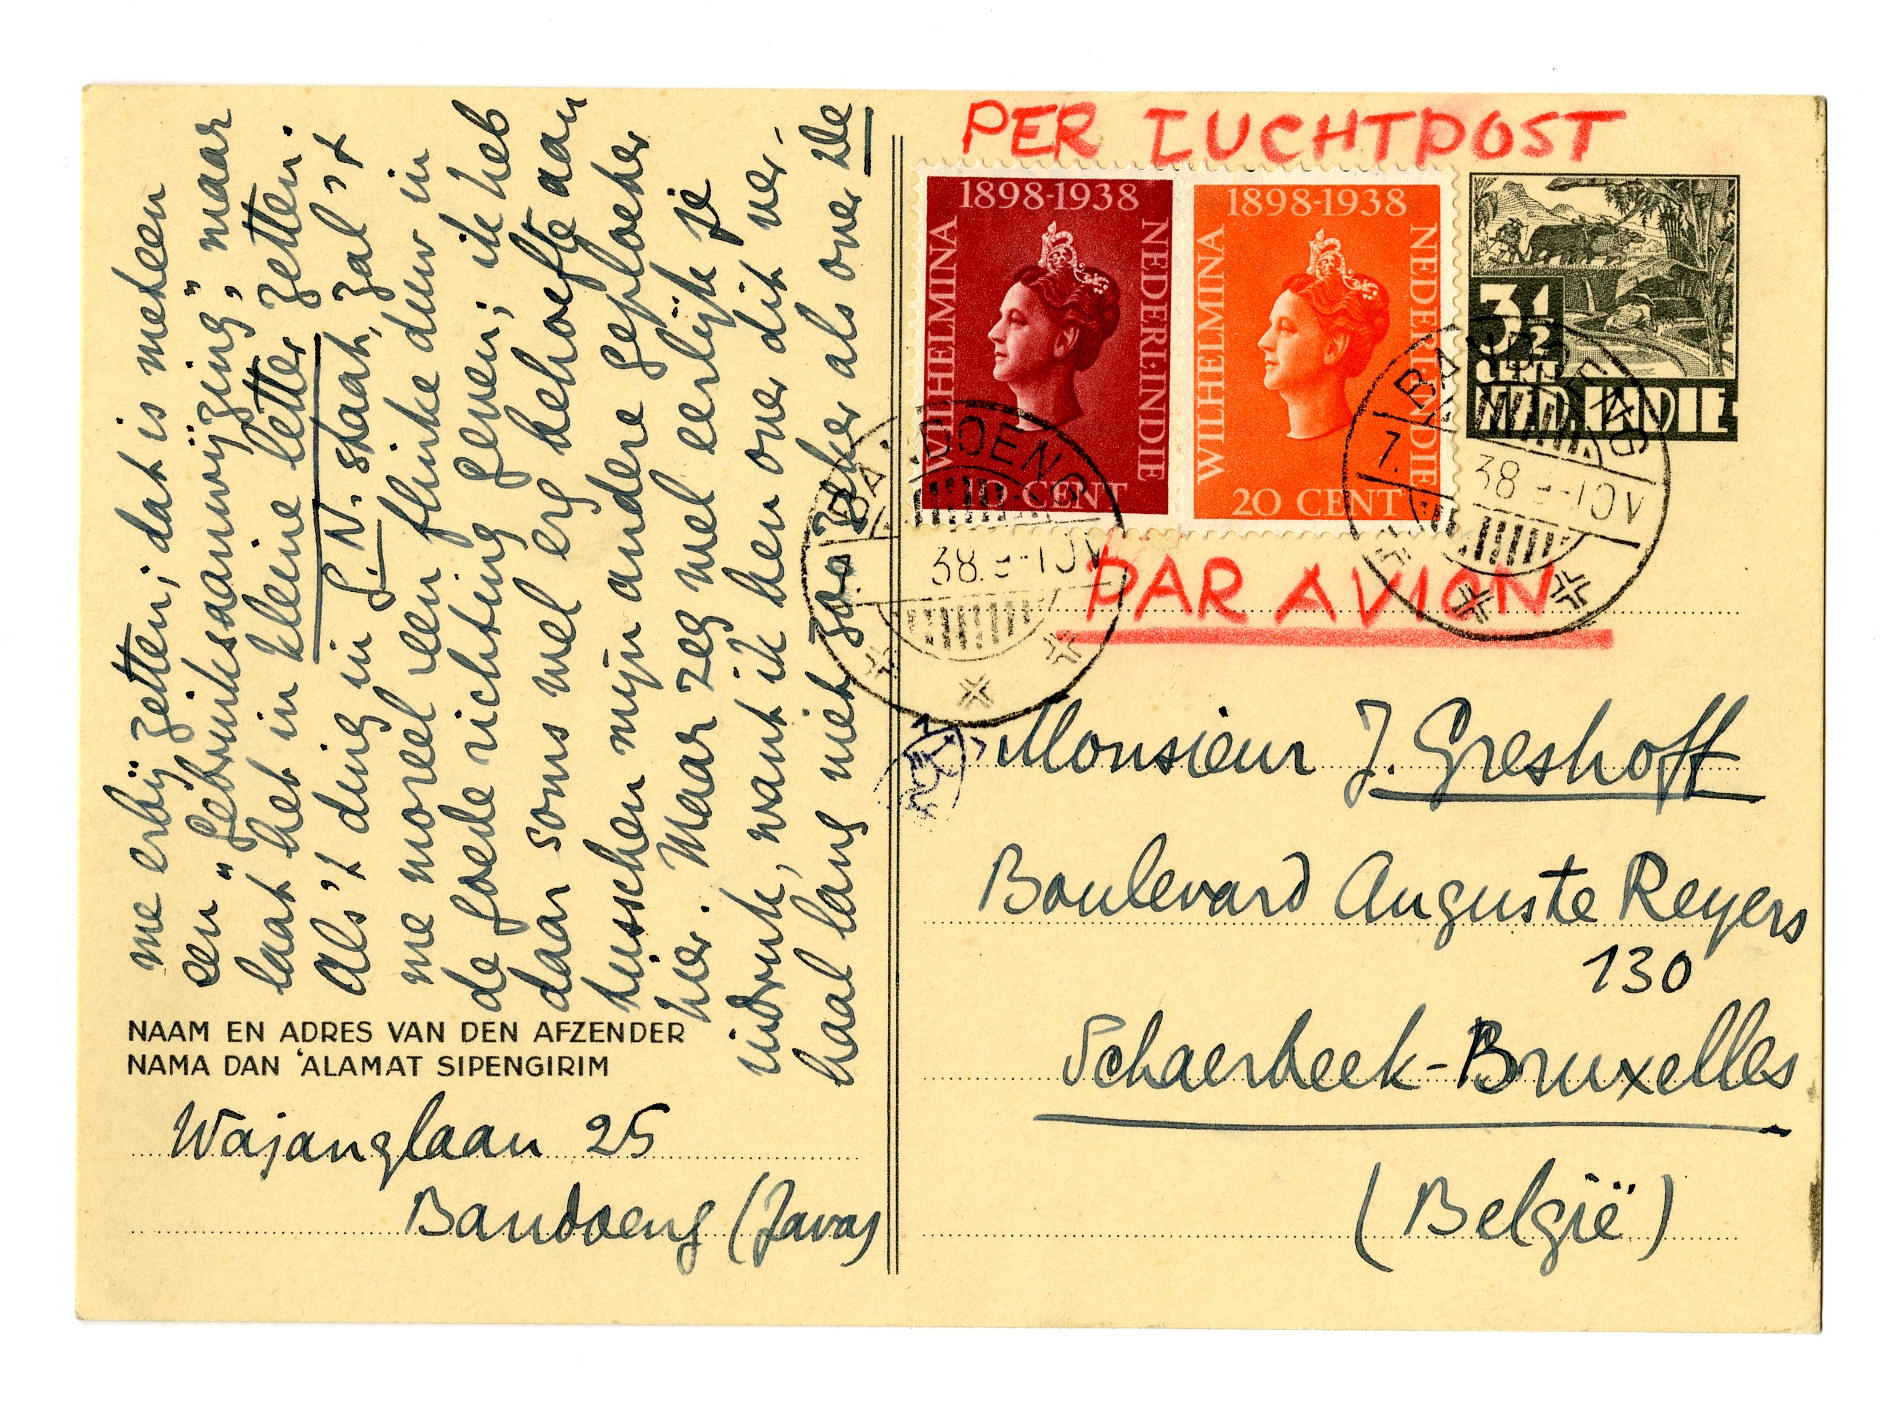 PER LUCHTPOST
1898-1938
WILHELMINA
NEDERL.INDIE
10 CENT
1898-1938
WILHELMINA
NEDERL.INDIE
20 CENT
3 1/2
CENT
NED. INDIE
BANDOENG
38.9-10V
BANDOENG
7. 38.9-10V
PAR AVION
Monsieur J. Greshoff
Boulevard Auguste Reyers
130
Schaerbeek-Bruxelles
(België)
me erbij zetten; dat is meteen
een "gebruiksaanwijzing", maar
laat het in kleine letter zetten.
Als 't ding in G.N. staat, zal 't
me moreel een flinke duw in
de goede richting geven; ik heb
daar soms wel erg behoefte aan
tusschen mijn andere geploeter
hier. Maar zeg wel eerlijk je
indruk, want ik ben over dit ver-
haal lang niet zoo zeker als over De
NAAM EN ADRES VAN DEN AFZENDER
NAMA DAN 'ALAMAT SIPENGIRIM
Wajanglaan 25
Bandoeng (Java)